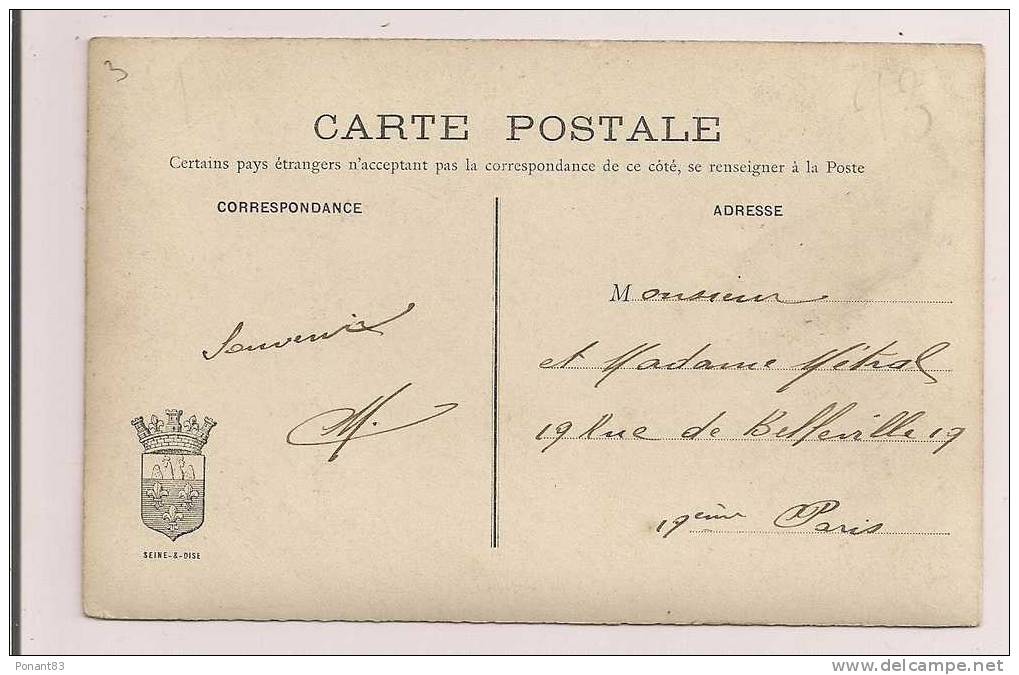 3
CARTE POSTALE
Certains pays étrangers n'acceptant pas la correspondance de ce côté, se renseigner à la Poste
CORRESPONDANCE
ADRESSE
Souvenir
M.
Monsieur
et Madame Métral
19 Rue de Belleville 19
19ème Paris
SEINE-&-OISE
Ponant83
www.delcampe.net